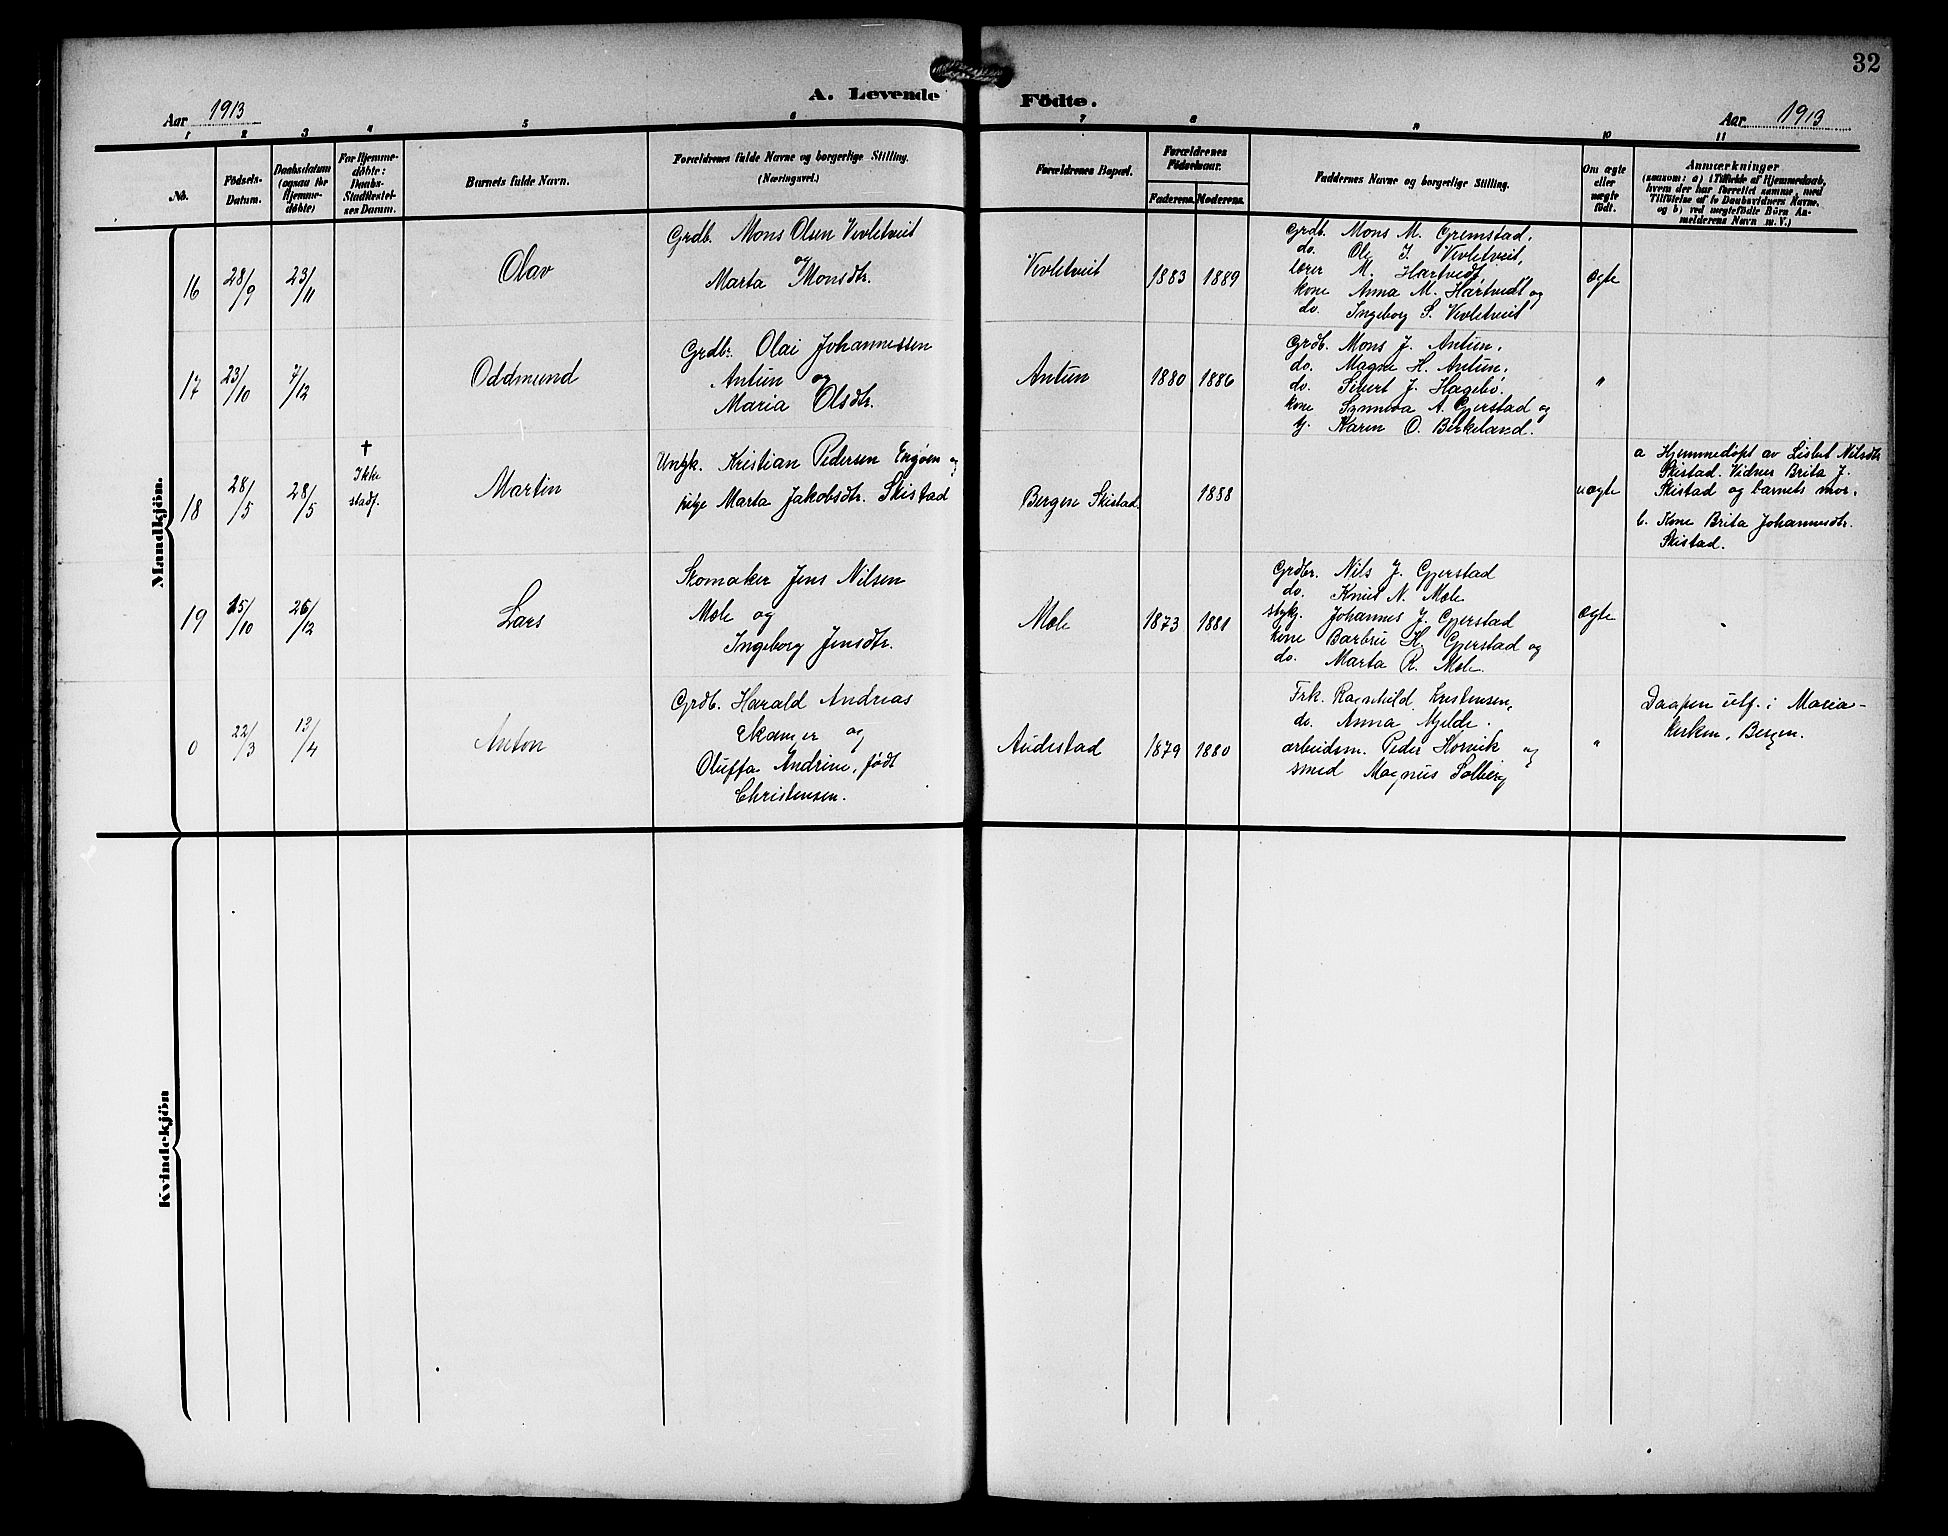 32
A. Levende Födte.
Aar 1913
Aar 1913
1 2 3 4 5 6 7 8 9 10 11
No.
Födsels-Datum.
Daabsdatum (ogsaa for Hjemme-döbte)
For Hjemme-döbte: Daabs-Stadfæstel-ses Datum.
Barnets fulde Navn.
Forældrenes fulde Navne og borgerlige Stilling. (Næringsvei.)
Forældrenes Bopæl.
Forældrenes Födselsaar.
Faderens. Moderens.
Faddernes Navne og borgerlige Stilling.
Om ægte eller uægte födt.
Anmærkninger
(saasom: a) i Tilfælde af Hjemmedaab,
hvem der har forrettet samme, med
Tilföielse af to Daabsvidners Navne,
og b) ved uægtefödte Börn An-
melderens Navn m. V.)
Mandkjön.
16 28/9 23/11
Olav
Grdb. Mons Olsen Vevletveit
og
Marta Monsdtr.
Vevletveit
1883 1889
Grdb. Mons M. Gremstad,
do. Ole J. Vevletveit,
lærer M. Hartvedt,
kone Anna M. Hartvedt og
do. Ingeborg S. Vevletveit
ægte
17 23/10 7/12
Oddmund
Grdbr. Olai Johannessen
Antun og
Maria Olsdtr.
Antun
1880 1886
Grdb. Mons J. Antun,
do. Magne H. Antun,
do. Sivert J. Hagebø.
kone Synneva A. Gjerstad og
pj. Karen O. Birkeland.
"
18 28/5 28/5
†
Ikke
stadf.
Martin
Ungk. Kristian Pedersen Engøen og
pige Marta Jakobsdtr. Skistad
Bergen Skistad.
1888
uægte
a Hjemmedøpt av Lisbet Nilsdtr
Skistad. Vidner Brita J.
Skistad og barnets mor.
b. Kone Brita Johannesdtr.
Skistad.
19 15/10 26/12
Lars
Skomaker Jens Nilsen
Mæle og
Ingeborg Jensdtr.
Mæle
1873 1881
Grdbr. Nils J. Gjerstad
do. Knut N. Mæle
Johannes J. Gjerstad
kone Barbru H. Gjerstad og
do. Marta R. Mæle.
ægte
0 22/3 13/4
Anton
Grdb. Harald Andreas
Ekanger og
Oluffa Andrine, født
Christensen.
Audestad
1879 1880
Frk. Ragnhild Kristensen,
do. Anna Mjelde.
arbeidsm. Peder Horvik og
smed Magnus Solberg
"
Daapen utf. i Maria-
kirken, Bergen.
Kvindekjön